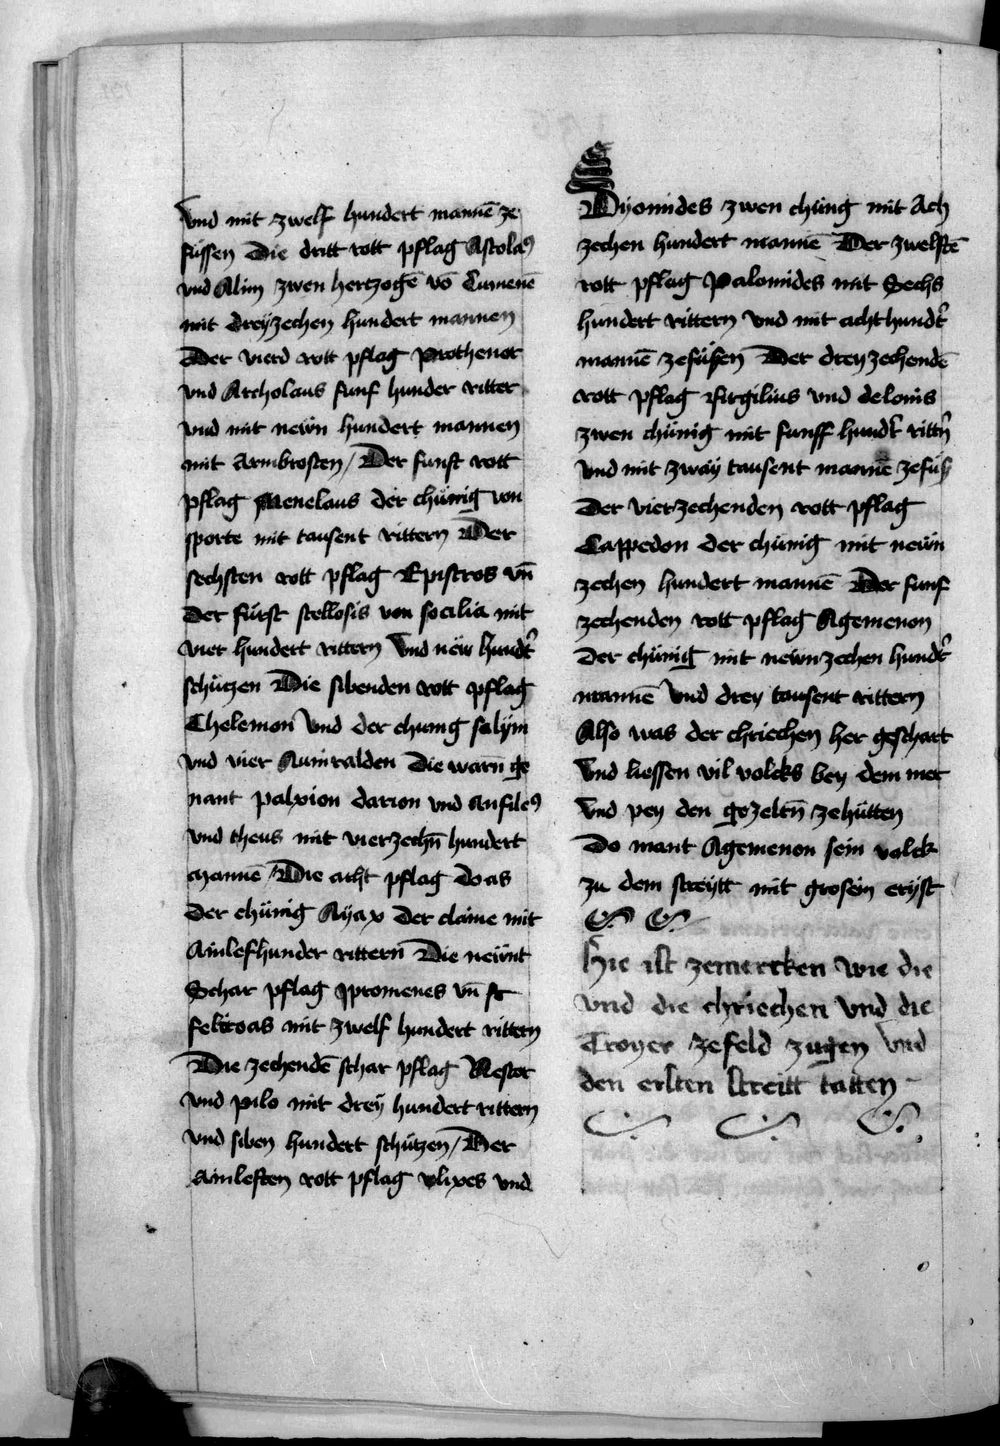 vnd mit zwelf hundert mannē ze
füssen Die dritt rott pflag Astolaꝰ
vnd Alim zwen hertzogē vō Cumenē
mit dreyzechen hundert mannen
Der vierd rott pflag Prothenor
vnd Archolaus funf hunder ritter
vnd mit newn hundert mannen
mit Armbrosten / Der funft rott
pflag Menelaus der chünig von
sporte mit tausent rittern Der
sechsten rott pflag Epistros vn̄
Der fürst stellosis von socilia mit
vier hundert rittern Vnd new hundt̓
schützen Die sibenden rott pflag
Thelemon Vnd der chunig salym
vnd vier Amiralden Die warn ge
nant palxion darion vnd Anfileꝰ
vnd theus mit vierzechn̄ hundert
mannē / Die acht pflag doas
der chünig Ayax der claine mit
Ainlefhunder rittern Die newnt
Schar pflag Ipromenes vn̄ st
feltroas mit zwelf hundert rittern
Die zechendē schar pflag Nestor
vnd pilo mit drey hundert rittern
vnd siben hundert schützen / Der
Ainleften rott pflag vlixes vnd
Dyomides zwen chünig mit Ach
zechen hundert mannē Der zwelftē
rott pflag Palomides mit Sechs
hundert rittern Vnd mit achthundt̓
mannē zefüssen Der dreyzechendē
rott pflag Firgilius vnd delonis
zwen chünig mit funff hundt̓ rittn̄
Vnd mit zway tausent mannē zefüß
Der vierzechenden rott pflag
Cappedon der chünig mit newn
zechen hundert mannē Der funf
zechenden rott pflag Agemenon
Der chünig mit newnzechen hundt̓
mannē Vnd drey tausent rittern
Also was der chriechen her geschart
Vnd liessen vil volcks bey dem mer
Vnd pey den gezeltn̄ zehütten
Do mant Agemenon sein volck
zu dem streytt mit grosem eryst
Hie ist zemercken wie die
vnd die chriechen Vnd die
Troyer zefeld zugen Vnd
den ersten streitt tatten